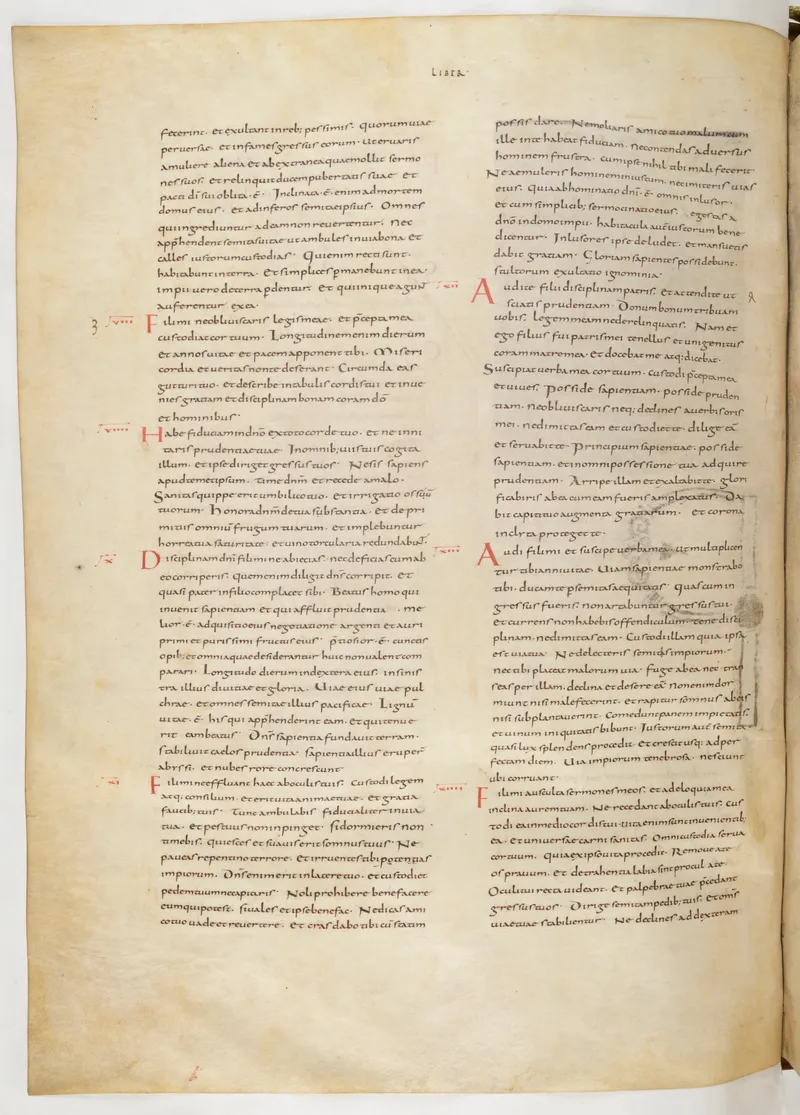 LIBER
fecerint. et exultant in reb; pessimis. quorum uiae
peruersae. et infames gressus eorum. ut eruaris
a muliere aliena et ab extranea quae mollit sermo
nes suos. et relinquit ducem pubertatis suae. et
pacti dī sui oblita .ē. Inclinata .ē. enim ad mortem
domus eius. et ad inferos semitae ipsius. Omnes
qui ingrediuntur ad eam non reuertentur. nec
app̄hendent semitas uitae ut ambules in uia bona. et
calles iustorum custodias. Qui enim recti sunt.
habitabunt in terra. et simplices pmanebunt in ea.
impii uero de terra pdentur. et qui inique agunt
auferentur ex ea.
Fili mi ne obliuiscaris legis meae. et p̄cepta mea
custodiat cor tuum. Longitudinem enim dierum
et annos uitae et pacem apponent tibi. Miseri
cordia et ueritas non te deserant. Circumda eas
gutturi tuo. et describe in tabulis cordis tui et inue
nies gratiam et disciplinam bonam coram dō
et hominibus.
Habe fiduciam in dn̄o ex toto corde tuo. et ne inni
taris prudentiae tuae. In omnib; uiis tuis cogita
illum. et ipse diriget gressus tuos. Ne sis sapiens
apud temetipsum. time dn̄m et recede a malo.
Sanitas quippe erit umbilico tuo. et irrigatio ossuū
tuorum. Honora dn̄m de tua substantia. et de pri
mitiis omniū frugum tuarum. et implebuntur
horrea tua saturitate. et uino torcularia redundabunt.
Disciplinam dn̄i fili mi ne abicias. nec deficias cum ab
eo corriperis. quem enim diligit dn̄s corripit. et
quasi pater in filio complacet sibi. Beatus homo qui
inuenit sapientiam et qui affluit prudentia. me
lior .ē. adquisitio eius negotiatione argenti et auri
primi et purissimi fructus eius. p̄tiosior .ē. cunctis
opib; et omnia quae desiderantur huic non ualent com
parari. Longitudo dierum in dextera eius. in sinis
tra illius diuitiae et gloria. Uiae eius uiae pul
chrae. et omnes semitae illius pacificae. Lignū
uitae .ē. his qui app̄henderint eam. et qui tenue
rit eam beatus. Dn̄s sapientia fundauit terram.
stabiliuit caelos prudentia. sapientia illius eruper̄
abyssi. et nubes rore concrescunt.
Fili mi ne effluant haec ab oculis tuis. Custodi legem
atq; consilium. et erit uita animae tuae. et gratia
faucib; tuis. Tunc ambulabis fiducialiter in uia
tua. et pes tuus non inpinget. si dormieris non
timebis. quiesces et suauis erit somnus tuus. Ne
paueas repentino terrore. et irruentes tibi potentias
impiorum. Dn̄s enim erit in latere tuo. et custodiet
pedem tuum ne capiaris. Noli prohibere benefacere
eum qui potest. si uales et ipse benefac. Ne dicas ami
co tuo uade et reuertere. et cras dabo tibi cū statim
possis dare. Ne moliaris amico tuo malum cum
ille in te habeat fiduciam. ne contendas aduersus
hominem frustra. cum ipse nihil tibi mali fecerit
Ne aemuleris hominem iniustum. nec imiteris uias
eius. Quia abhominatio dn̄i .ē. omnis inlusor.
et cum simplicib; sermocinatio eius. egestas a
dn̄o in domo impii. habitacula aut iustorum bene
dicentur. Inlusores ipse deludet. et mansuetis
dabit gratiam. Gloriam sapientes possidebunt.
stultorum exultatio ignominia.
Audite filii disciplinam patris. et attendite ut
sciatis prudentiam. Donum bonum tribuam
uobis. legem meam ne derelinquatis. Nam et
ego filius fui patris mei tenellus et unigenitus
coram matre mea. et docebat me atq; dicebat.
Suscipiat uerba mea cor tuum. custodi p̄cepta mea
et uiues. Posside sapientiam. posside pruden
tiam. ne obliuiscaris neq; declines a uerbis oris
mei. ne dimittas eam et custodiet te. dilige eā
et seruabit te. Principium sapientiae. posside
sapientiam. et in omni possessione tua adquire
prudentiam. Arripe illam et exaltabit te. glori
ficaberis ab ea cum eam fueris amplexatus. Da
bit capiti tuo augmenta gratiarum. et corona
inclyta proteget te.
Audi fili mi et suscipe uerba mea. ut multiplicen
tur tibi anni uitae. Uiam sapientiae monstrabo
tibi. ducam te p semitas aequitatis. quas cum in
gressus fueris. non artabuntur gressus tui.
et currens non habebis offendiculum. tene disci
plinam. ne dimittas eam. Custodi illam quia ipsa
est uita tua. Ne delecteris semitis impiorum.
nec tibi placeat malorum uia. fuge ab ea nec tran
seas per illam. declina et desere eā. Non enim dor
miunt nisi malefecerint. et rapitur somnus ab eis
nisi subplantauerint. Comedunt panem impietatis.
et uinum iniquitatis bibunt. Iustorum aut̄ semita
quasi lux splendens procedit. et crescit usq; ad per
fectam diem. Uia impiorum tenebrosa. nesciunt
ubi corruant.
Fili mi ausculta sermones meos. et ad eloquia mea
inclina aurem tuam. Ne recedant ab oculis tuis. cus
todi ea in medio cordis tui. uita enim sunt inuenientib;
ea. et uniuersae carni sanitas. Omni custodia serua
cor tuum. quia ex ipso uita procedit. Remoue a te
os prauum. et detrahentia labia sint procul a te.
Oculi tui recta uideant. et palpebrae tuae p̄cedant
gressus tuos. Dirige semitam pedib; tuis. et om̄s
uiae tuae stabilientur. Ne declines ad dexteram